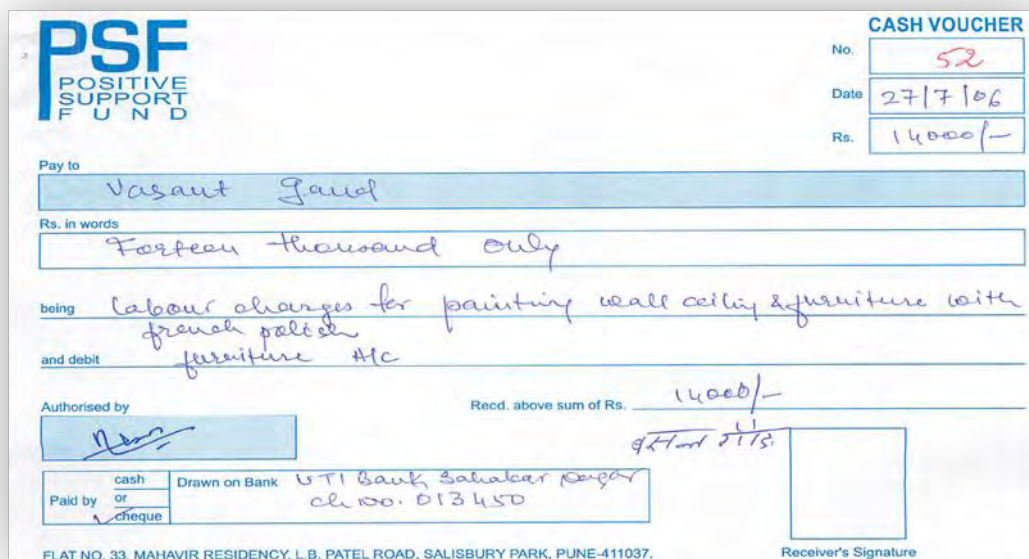 PSF
POSITIVE
SUPPORT
FUND
CASH VOUCHER
No. 52
Date 27/7/06
Rs. 14000/-
Pay to
Vasant Gaud
Rs. in words
Forteen thousand only
being labour charges for painting wall ceiling & furniture with
french polish
and debit furniture A/c
Authorised by
Recd. above sum of Rs. 14000/-
वसन्त गौड
Paid by cash or cheque
Drawn on Bank UTI Bank, Sahakar nagar
ch no. 013450
FLAT NO. 33, MAHAVIR RESIDENCY, L.B. PATEL ROAD, SALISBURY PARK, PUNE-411037.
Receiver's Signature